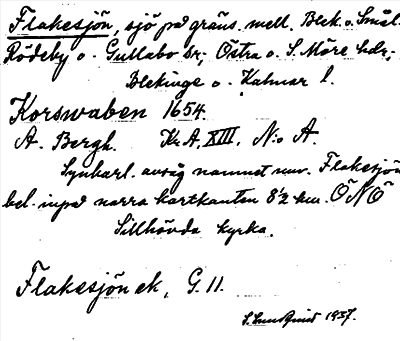 Flakesjön, sjö på gräns. mell. Blek. o. Smål.
Rödeby o. Gullabo sr; Östra o. S. Möre hdr;
Blekinge o. Kalmar l.
Korswaben 1654.
A. Bergh. Kr. A. XIII, N:o A.
Synbarl. avsåg namnet nuv. Flakesjön
bel. inpå norra kartkanten 8½ km. ÖNÖ
Sillhövda kyrka.
Flakesjön ek, G. 11.
S. Lundquist 1937.